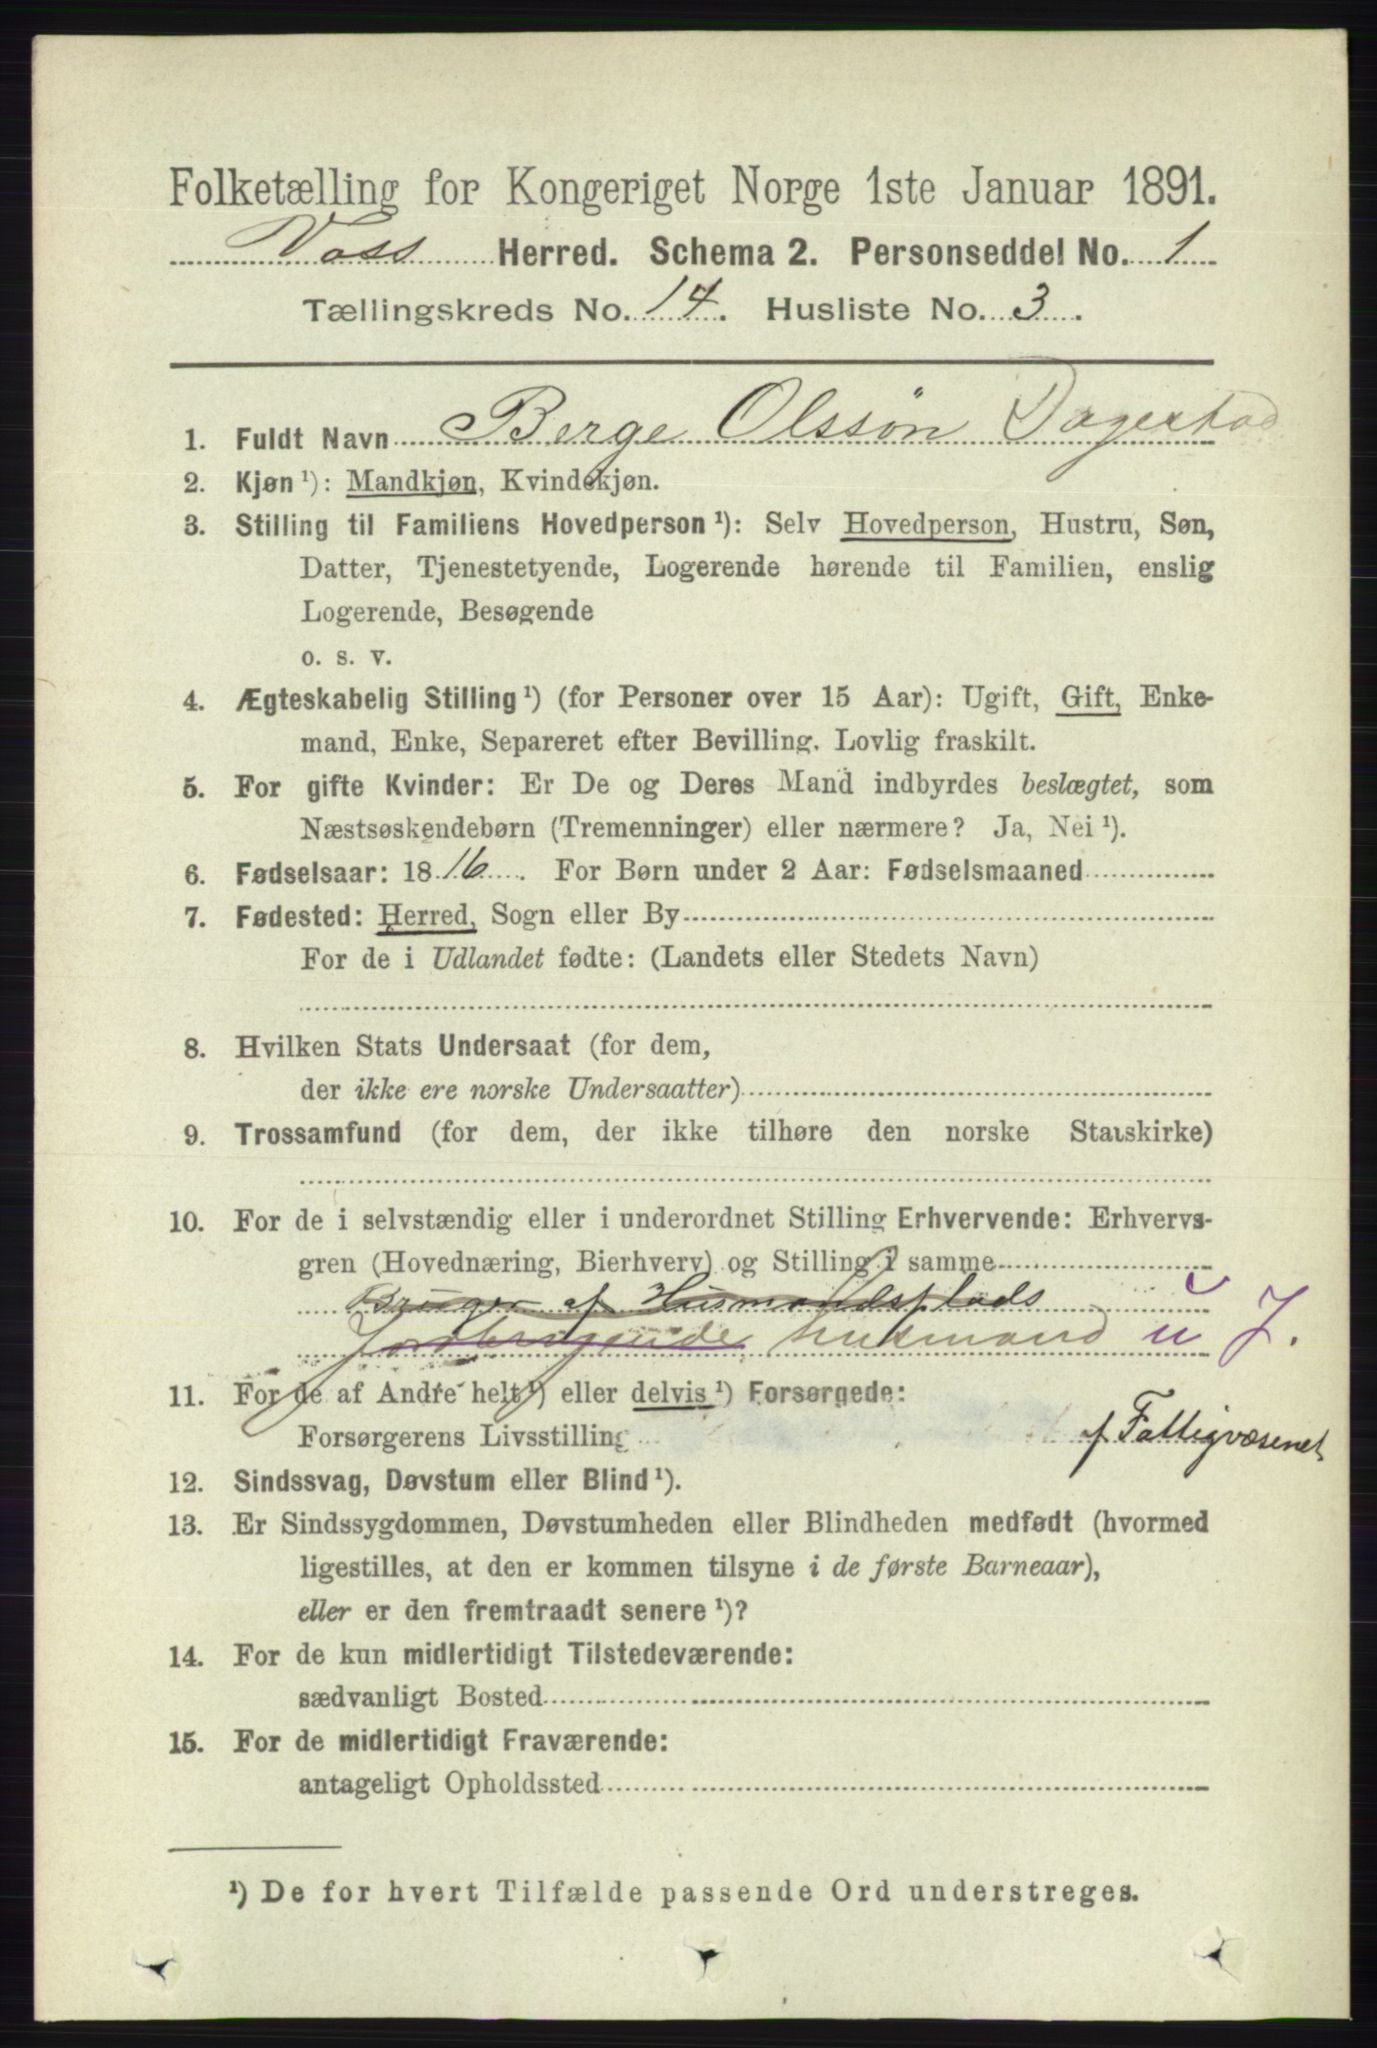 Folketælling for Kongeriget Norge 1ste Januar 1891.
Voss Herred. Schema 2. Personseddel No. 1
Tællingskreds No. 14. Husliste No. 3.
1. Fuldt Navn Berge Olssön Dagestad
2. Kjøn ¹): Mandkjøn, Kvindekjøn.
3. Stilling til Familiens Hovedperson ¹): Selv Hovedperson, Hustru, Søn,
Datter, Tjenestetyende, Logerende hørende til Familien, enslig
Logerende, Besøgende
o. s. v.
4. Ægteskabelig Stilling ¹) (for Personer over 15 Aar): Ugift, Gift, Enke-
mand, Enke, Separeret efter Bevilling. Lovlig fraskilt.
5. For gifte Kvinder: Er De og Deres Mand indbyrdes beslægtet, som
Næstsøskendebørn (Tremenninger) eller nærmere? Ja, Nei ¹).
6. Fødselsaar: 1816. For Børn under 2 Aar: Fødselsmaaned
7. Fødested: Herred, Sogn eller By
For de i Udlandet fødte: (Landets eller Stedets Navn)
8. Hvilken Stats Undersaat (for dem,
der ikke ere norske Undersaatter)
9. Trossamfund (for dem, der ikke tilhøre den norske Statskirke)
10. For de i selvstændig eller i underordnet Stilling Erhvervende: Erhvervs-
gren (Hovednæring, Bierhverv) og Stilling i samme
Bruger af Husmandsplads
Jordbrugende husmand u J.
11. For de af Andre helt ¹) eller delvis ¹) Forsørgede:
Forsørgerens Livsstilling af Fattigvæsenet
12. Sindssvag, Døvstum eller Blind ¹).
13. Er Sindssygdommen, Døvstumheden eller Blindheden medfødt (hvormed
ligestilles, at den er kommen tilsyne i de første Barneaar),
eller er den fremtraadt senere ¹)?
14. For de kun midlertidigt Tilstedeværende:
sædvanligt Bosted
15. For de midlertidigt Fraværende:
antageligt Opholdssted
¹) De for hvert Tilfælde passende Ord understreges.